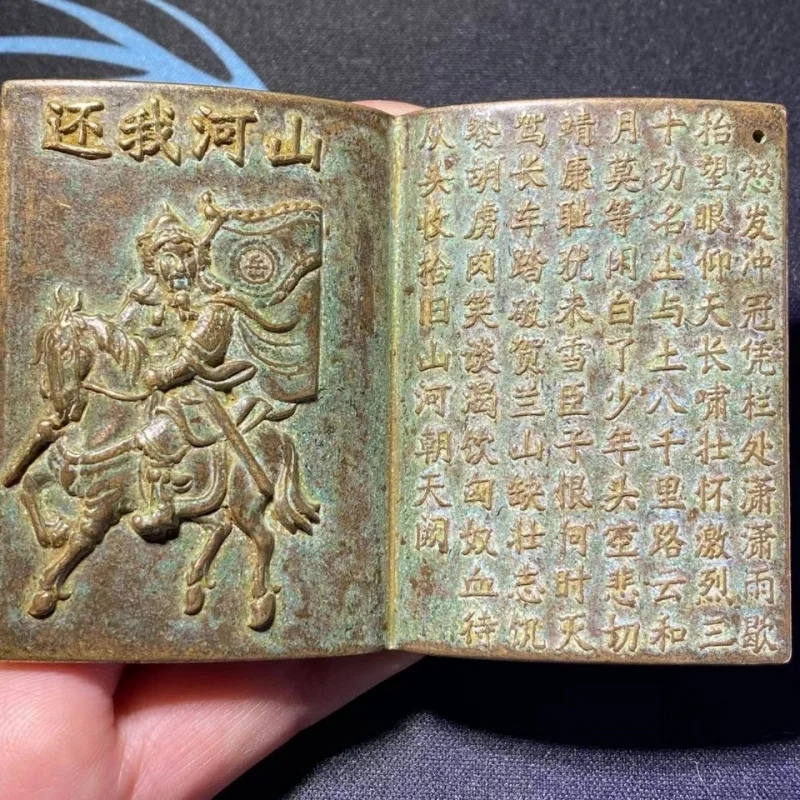 还我河山
岳
怒发冲冠凭栏处萧萧雨歇
抬望眼仰天长啸壮怀激烈三
十功名尘与土八千里路云和
月莫等闲白了少年头空悲切
靖康耻犹未雪臣子恨何时灭
驾长车踏破贺兰山缺壮志饥
餐胡虏肉笑谈渴饮匈奴血待
从头收拾旧山河朝天阙